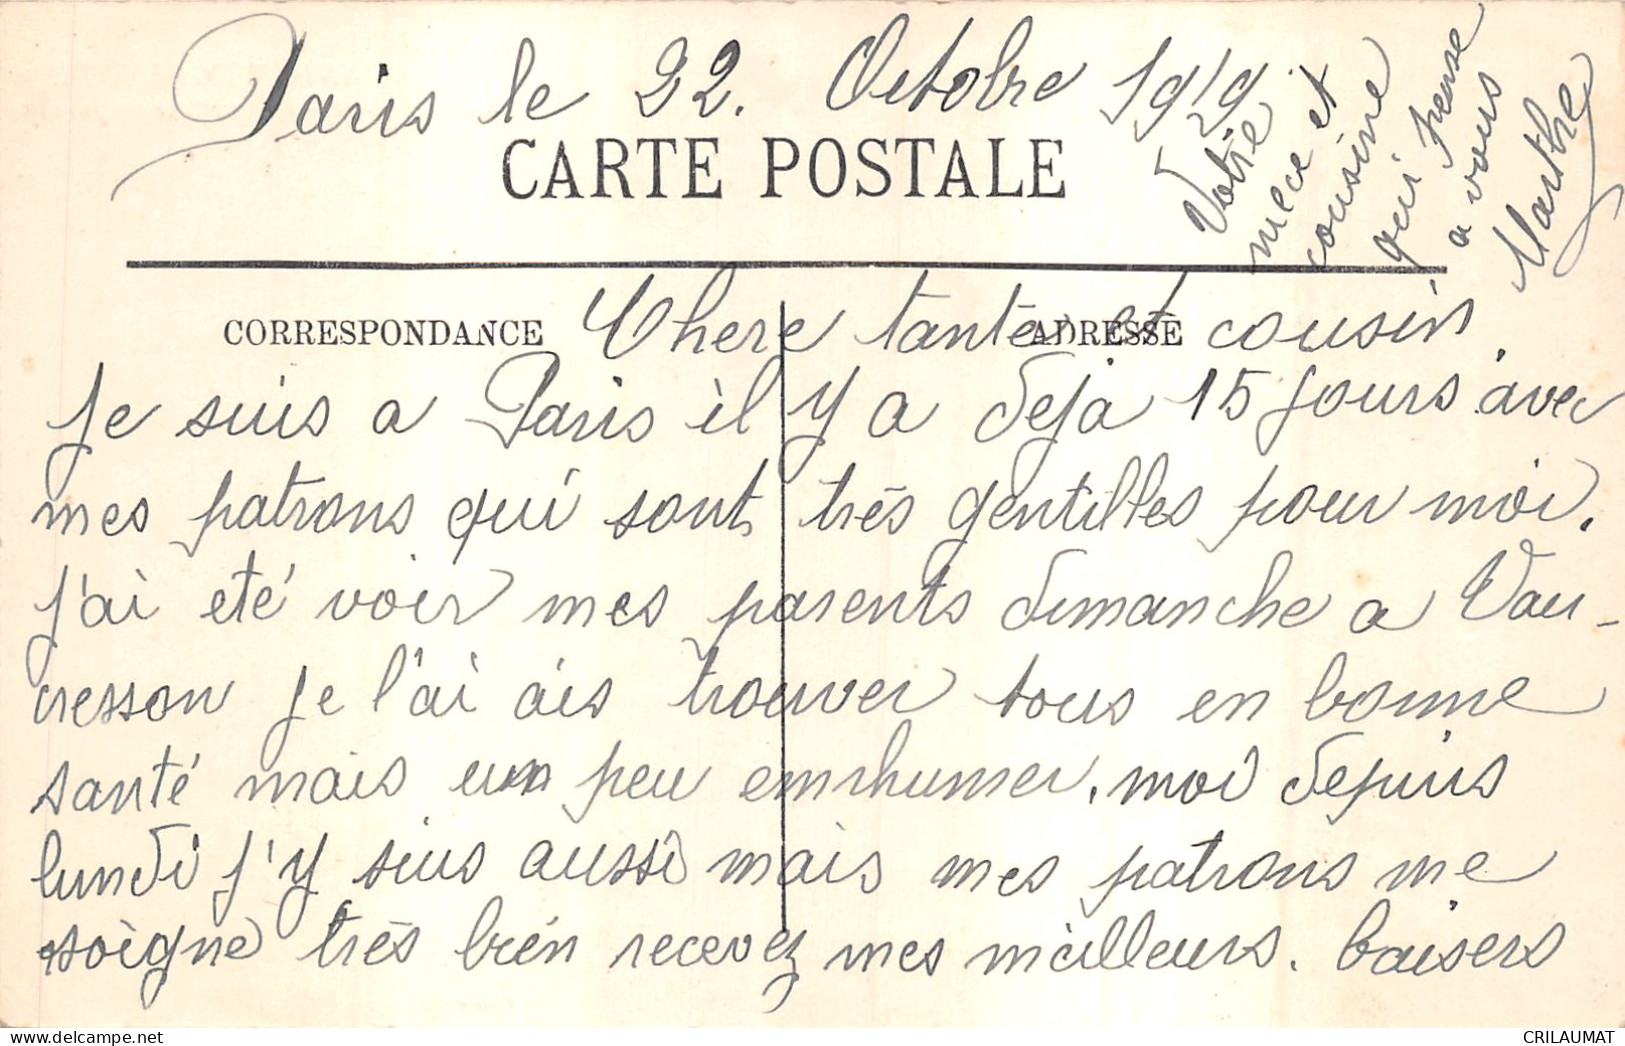 Paris le 22. Octobre 1919
CARTE POSTALE
CORRESPONDANCE
ADRESSE
Chere tante et cousin
Je suis a Paris il y a deja 15 jours avec
mes patrons qui sont trés gentilles pour moi.
J'ai eté voir mes parents dimanche a Vau-
cresson je l'ai ais trouver tous en bonne
santé mais un peu emrhumer. moi depuis
lundi j'y suis aussi mais mes patrons me
soigne trés bien recevez mes meilleurs. baisers
Votre
niece et
cousine
qui pense
a vous
Marthe
CRILAUMAT